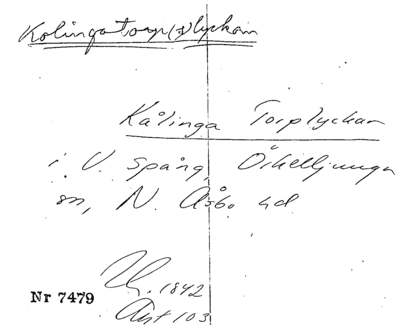 Kolingatorp(s)lyckan
Kålinga Torplyckan
i V. Spång, Örkelljunga
sn, N. Åsbo hd
Uh. 1842
Akt 103
Nr 7479